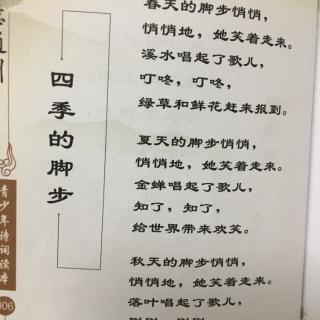 四季的脚步
春天的脚步悄悄，
悄悄地，她笑着走来。
溪水唱起了歌儿，
叮咚，叮咚，
绿草和鲜花赶来报到。
夏天的脚步悄悄，
悄悄地，她笑着走来。
金蝉唱起了歌儿，
知了，知了，
给世界带来欢笑。
秋天的脚步悄悄，
悄悄地，她笑着走来。
落叶唱起了歌儿，
青少年诗词读库
006